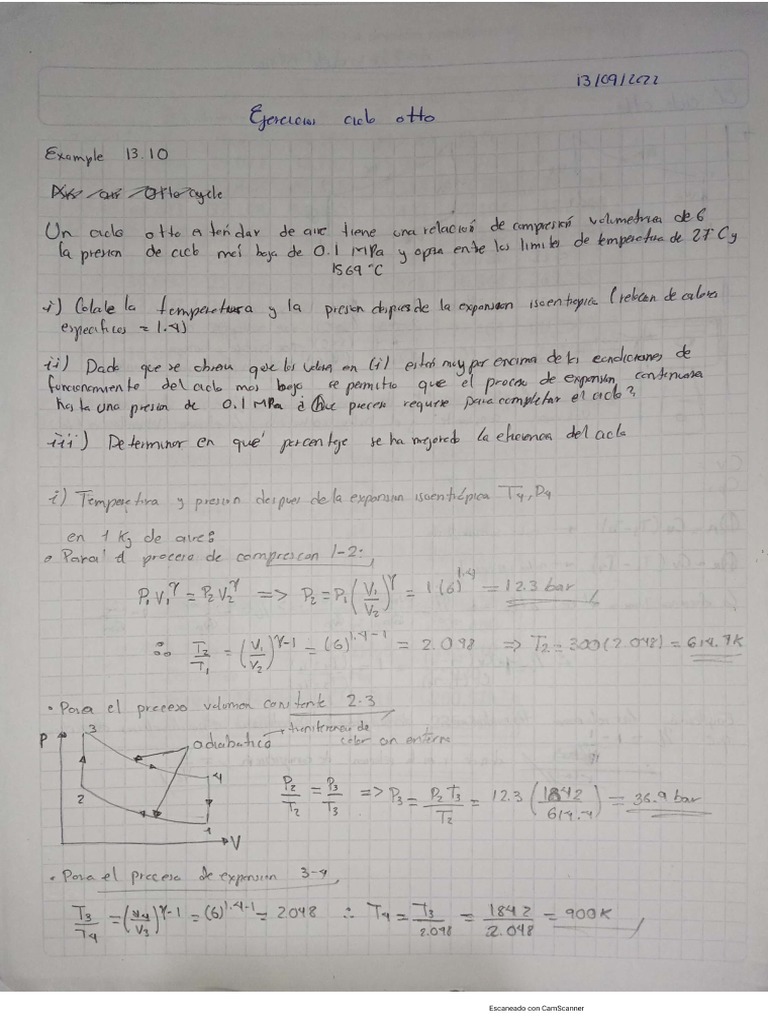 13/09/2022
Ejercicios ciclo otto
Example 13.10
Otto cycle
Un ciclo otto estándar de aire tiene una relación de compresión volumetrica de 6
la presion de ciclo más baja de 0.1 MPa y opera entre los limites de temperatura de 27°C y
1569°C
i) Calcule la temperatura y la presion después de la expansion isoentropica (relacion de calores
especificos = 1.4)
ii) Dado que se observa que los valores en (i) están muy por encima de las condiciones de
funcionamiento del ciclo mas bajo se permitio que el proceso de expansión continuara
hasta una presion de 0.1 MPa ¿Que proceso requiere para completar el ciclo?
iii) Determinar en qué percentage se ha mejorado la eficiencia del ciclo
i) Temperatura y presion despues de la expansion isoentrópica T4, P4
en 1 Kg de aire:
• Para el proceso de compresion 1-2:
P₁V₁^γ = P₂V₂^γ => P₂ = P₁(V₁/V₂)^γ = 1(6)^1.4 = 12.3 bar
∴ T₂/T₁ = (V₁/V₂)^γ-1 = (6)^1.4-1 = 2.048 => T₂ = 300(2.048) = 614.4K
• Para el proceso volumen constante 2-3
P 3 adiabatico → transferencia de
calor con entorno
2 4 1 V
P₂/T₂ = P₃/T₃ => P₃ = P₂T₃/T₂ = 12.3(1842/614.4) = 36.9 bar
• Para el proceso de expansion 3-4
T₃/T₄ = (V₄/V₃)^γ-1 = (6)^1.4-1 = 2.048 ∴ T₄ = T₃/2.048 = 1842/2.048 = 900K
Escaneado con CamScanner